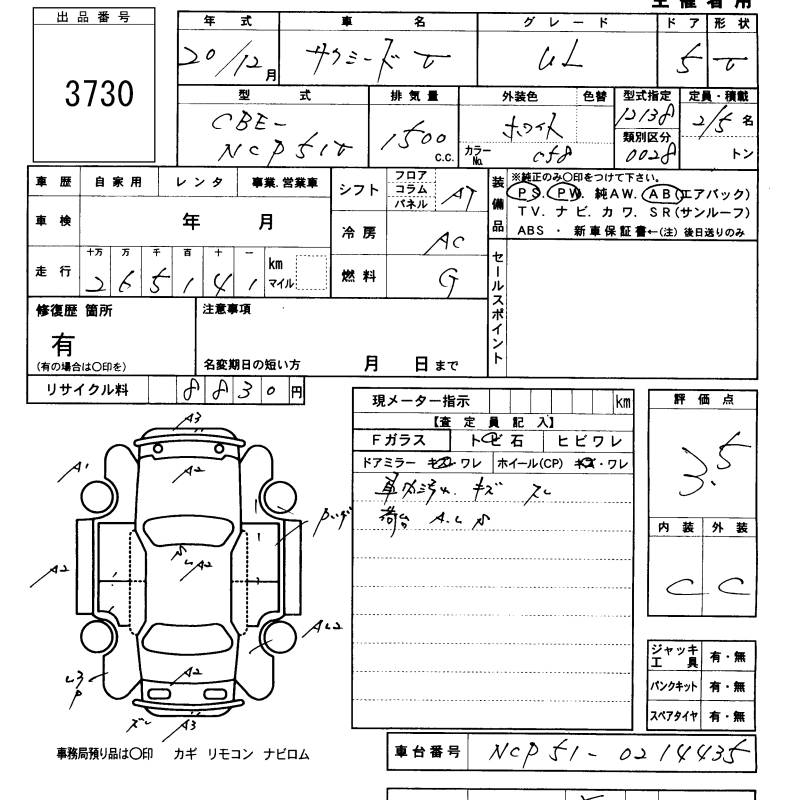 主催者用
出品番号
3730
年式 車名 グレード ドア 形状
20/12月 サクシードV UL 5 V
型式 排気量 外装色 色替 型式指定 定員・積載
CBE-NCP51V 1500 c.c. ホワイト 12138 2/5名
カラーNo. 058 類別区分 0028 トン
車歴 自家用 レンタ 事業.営業車
シフト フロア コラム パネル AT
装備品 ※純正のみ〇印をつけて下さい。
PS. PW. 純AW. AB(エアバック)
TV. ナビ. カワ. SR(サンルーフ)
ABS ・ 新車保証書←(注) 後日送りのみ
車検 年 月
冷房 AC
走行 十万 万 千 百 十 一 km マイル
265141
燃料 G
セールスポイント
修復歴 箇所
有
(有の場合は〇印を)
注意事項
名変期日の短い方 月 日まで
リサイクル料 8830円
現メーター指示 km
【査定員記入】
Fガラス トビ石 ヒビワレ
ドアミラー キズ・ワレ ホイール(CP) キズ・ワレ
車内汚れ. キズ スレ
荷台 A.L
評価点
3.5
内装 外装
C C
A3
A2
A1
A2
A2
AL2
A2
A3
ジャッキ工具 有・無
パンクキット 有・無
スペアタイヤ 有・無
事務局預り品は〇印 カギ リモコン ナビロム
車台番号 NCP51-0214435